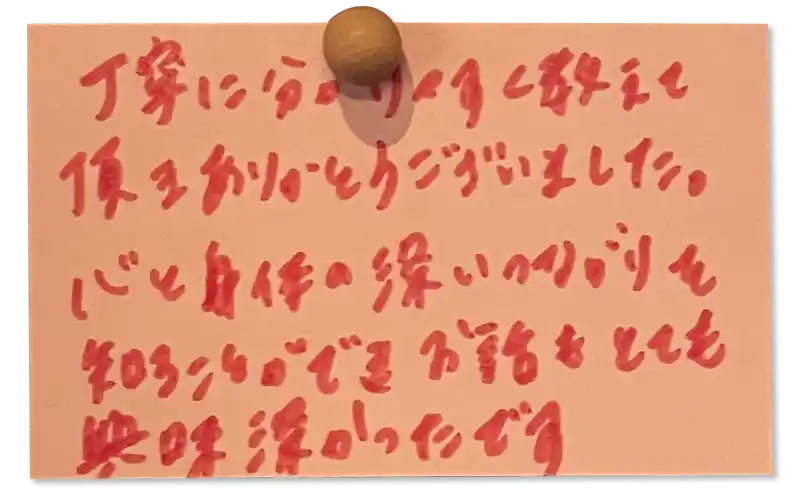 丁寧に分かりやすく教えて
頂きありがとうございました。
心と身体の深いつながりを
知ることができお話もとても
興味深かったです